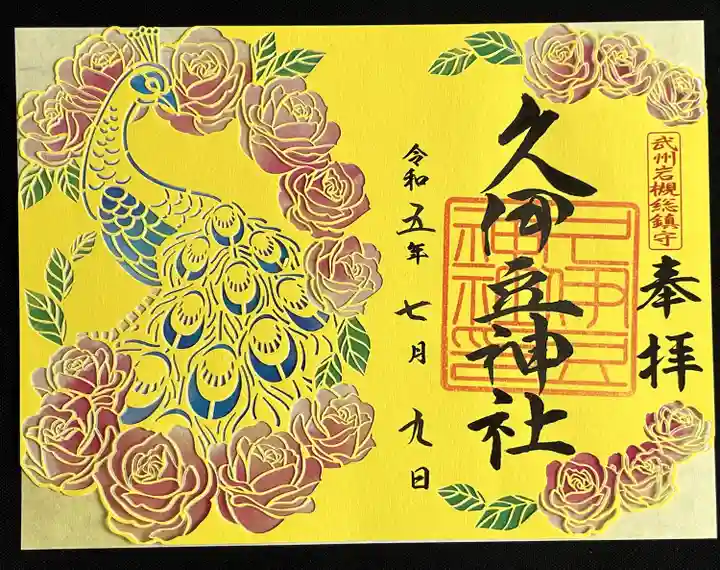 武州岩槻総鎮守
奉拝
久伊豆神社
令和五年七月九日